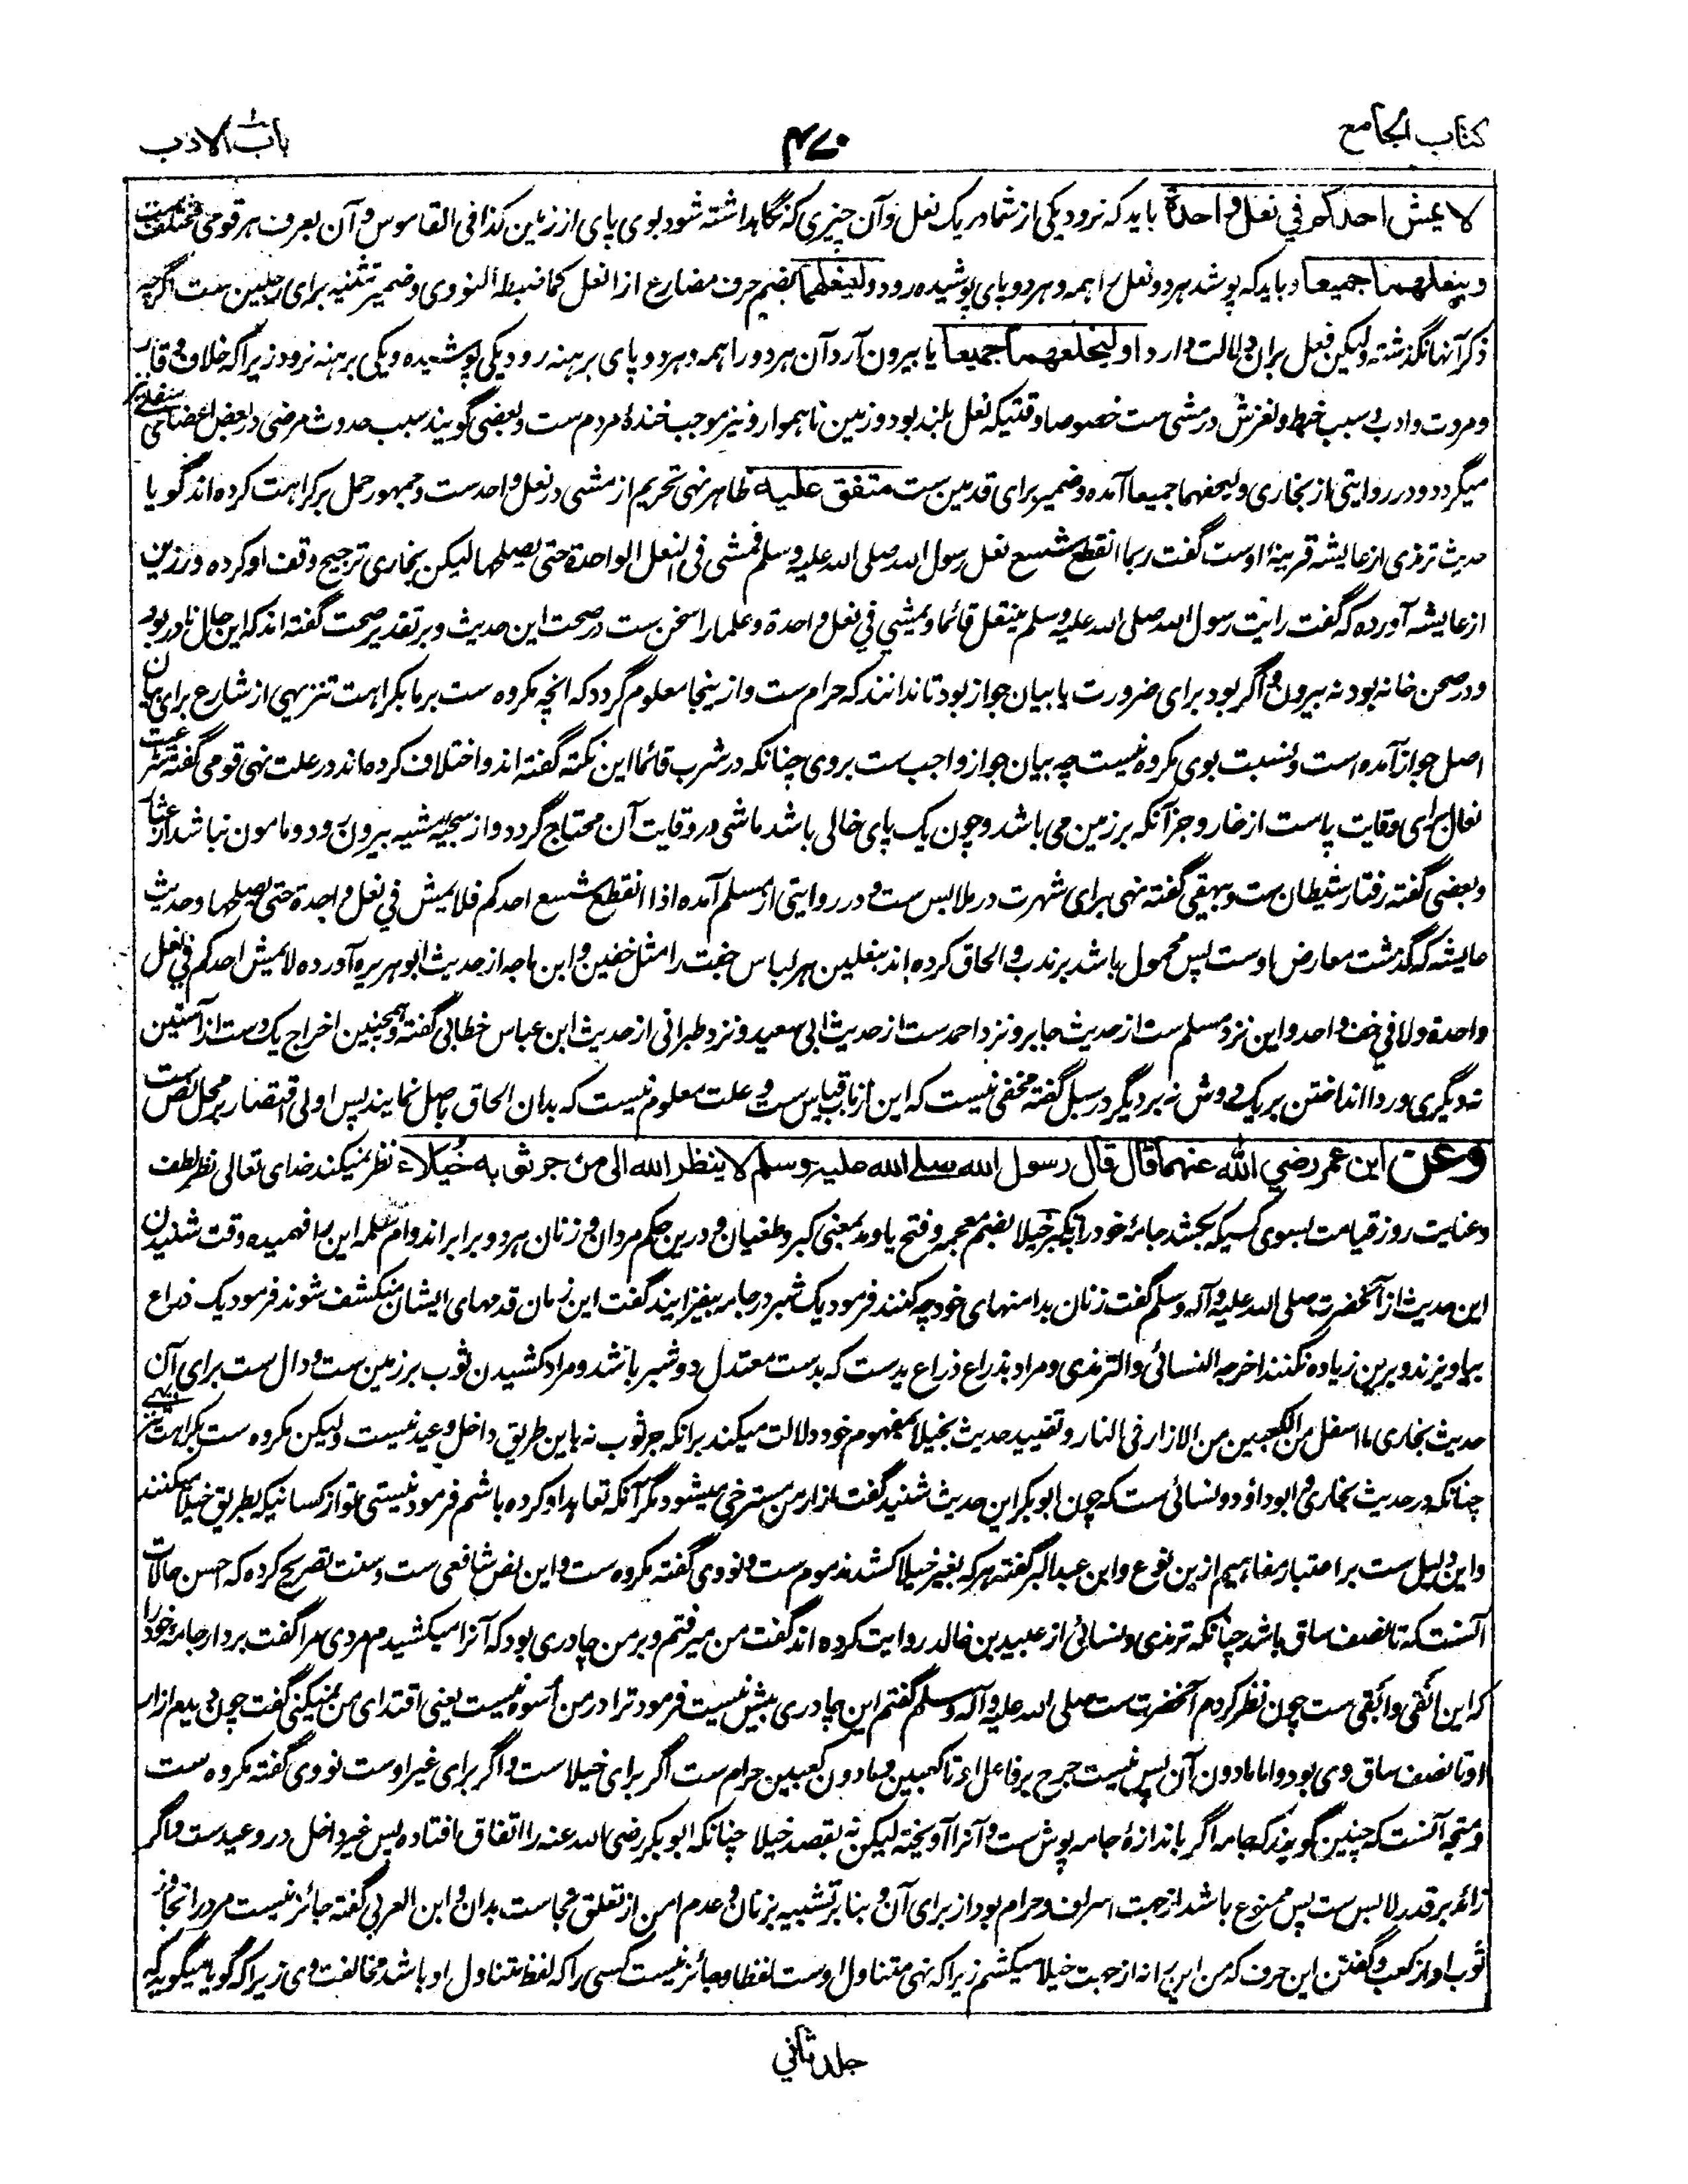 كتاب الجامع
۴۷۰
باب الادب
لا يمش احدكم في نعل واحدة باید که نرود یکی از شما در یک نعل و آن چیزی که نگاهداشته شود بوی پای از زمین کذا فی القاموس و آن بعرف هر قومی مختلف ست
وينعلهما جميعا و باید که پوشد هر دو نعل را همه و هر دو پای پوشیده رود ولینعلهما بضم حرف مضارع از انعل کما ضبطه النووی و ضمیر تثنیه برای رجلین ست اگرچه
ذکر آنها نگذشته ولیکن فعل بران دلالت دارد او ليخلعهما جميعا یا بیرون آرد آن هر دو را همه و هر دو پای برهنه رود یکی پوشیده و یکی برهنه نرود زیرا که خلاف وقار
ومروت و ادب و سبب خبط و لغزش در مشی ست خصوصا وقتیکه نعل بلند بود و زمین ناهموار و نیز موجب خندهٔ مردم ست و بعضی گویند سبب حدوث مرضی در بعض اعضا می
میگردد و در روایتی از بخاری ولیحفهما جمیعا آمده و ضمیر برای قدمین ست متفق عليه ظاهر نهی تحریم از مشی در نعل واحد ست و جمهور حمل بر کراهت کرده اند گویا
حدیث ترمذی از عایشه قرینهٔ اوست گفت ربما انقطع شسع نعل رسول الله صلی الله علیه وسلم فمشی فی النعل الواحدة حتی یصلحها لیکن بخاری ترجیح وقف او کرده و رزین
از عایشه آورده که گفت رایت رسول الله صلی الله علیه وسلم ینتعل قائما ویمشي في نعل واحدة و علما را سخن ست در صحت این حدیث و بر تقدیر صحت گفته اند که این حال نادر بود
و در صحن خانه بود نه بیرون و اگر بود برای ضرورت یا بیان جواز بود تا ندانند که حرام ست و از ینجا معلوم گردد که انچه مکروه ست بر ما بکراهت تنزیهی از شارع برای بیان
اصل جواز آمده است و نسبت بوی مکروه نیست چه بیان جواز واجب ست بروی چنانکه در شرب قائما این نکته گفته اند و اختلاف کرده اند در علت نهی قومی گفته شرعیت
نعال برای وقایت پاست از خار و جز آنکه بر زمین می باشد و چون یک پای خالی باشد ماشی در وقایت آن محتاج گردد و از سجیهٔ مشیه بیرون رود و مامون نباشد از عثار
و بعضی گفته رفتار شیطان ست و بیهقی گفته نهی برای شهرت در ملابس ست و در روایتی از مسلم آمده اذا انقطع شسع احدکم فلا یمش في نعل واحدة حتی یصلحها و حدیث
عایشه که گذشت معارض اوست پس محمول باشد بر ندب و الحاق کرده اند بنعلین هر لباس جفت را مثل خفین و ابن ماجه از حدیث ابوهریره آورده لا یمش احدکم في نعل
واحدة ولا في خف واحد و این نزد مسلم ست از حدیث جابر و نزد احمد ست از حدیث ابی سعید و نزد طبرانی از حدیث ابن عباس خطابی گفته و همچنین اخراج یک دست از آستین
نه دیگری و ردا انداختن بر یک دوش نه بر دیگر در سبل گفته مخفی نیست که این از باب قیاس ست و علت معلوم نیست که بدان الحاق باصل نمایند پس اولی اقتصار بر محل نص ست
وعن ابن عمر رضي الله عنهما قال قال رسول الله صلى الله عليه وسلم لا ينظر الله الى من جر ثوبه خيلاء نظر نمیکند خدای تعالی نظر لطف
و عنایت روز قیامت بسوی کسیکه بکشد جامهٔ خود را بتکبر خیلا بضم معجمه و فتح یا و مد بمعنی کبر و طغیان و درین حکم مردان و زنان هر دو برابر اند و ام سلمه این را فهمیده وقت شنیدن
این حدیث از آنحضرت صلی الله علیه و آله وسلم گفت زنان بدامنهای خود چه کنند فرمود یک شبر در جامه بیفزایند گفت این زمان قدمهای ایشان منکشف شوند فرمود یک ذراع
بیاویزند و برین زیاده نکنند اخرجه النسائی والترمذی و مراد بذراع ذراع ید ست که بدست معتدل دو شبر باشد و مراد کشیدن ثوب بر زمین ست و دال ست برای آن
حدیث بخاری ما اسفل من الکعبین من الازار فی النار و تقیید حدیث بخیلا بمفهوم خود دلالت میکند برانکه جر ثوب نه باین طریق داخل وعید نیست ولیکن مکروه ست بکراهت تنزیهی
چنانکه در حدیث بخاری و ابوداؤد و نسائی ست که چون ابوبکر این حدیث شنید گفت ازار من مسترخی میشود مگر آنکه تعاهد او کرده باشم فرمود نیستی تو از کسانیکه بطریق خیلا میکنند
و این دلیل ست بر اعتبار مفاهیم ازین نوع و ابن عبدالبر گفته هر که بغیر خیلا کشد مذموم ست و نووی گفته مکروه ست و این نص شافعی ست و سنت تصریح کرده که احسن حالات
آنست که تا نصف ساق باشد چنانکه ترمذی و نسائی از عبید بن خالد روایت کرده اند گفت من میرفتم و بر من چادری بود که آنرا میکشیدم مردی مرا گفت بردار جامهٔ خود را
که این انقی و ابقی ست چون نظر کردم آنحضرت ست صلی الله علیه و آله وسلم گفتم این چادری بیش نیست فرمود ترا در من اسوه نیست یعنی اقتدای من نمیکنی گفت چون دیدم ازار
او تا نصف ساق وی بود و اما مادون آن پس نیست حرج بر فاعل او تا کعبین و مادون کعبین حرام ست اگر برای خیلا ست و اگر برای غیر اوست نووی گفته مکروه ست
و متجه آنست که چنین گویند که جامه اگر باندازهٔ جامه پوش ست و آنرا آویخته لیکن نه بقصد خیلا چنانکه ابوبکر رضی الله عنه را اتفاق افتاده پس غیر داخل در وعید ست و اگر
زائد بر قدر لابس ست پس ممنوع باشد از جهت اسراف و حرام بود از برای آن و بنا بر تشبیه بزنان و عدم امن از تعلق نجاست بدان و ابن العربی گفته جائز نیست مرد را تجاوز
ثوب او از کعب و گفتن این حرف که من این را نه از جهت خیلا میکشم زیرا که نهی متناول اوست لفظا و جائز نیست کسی را که لفظ متناول او باشد مخالفت وی زیرا که گویا میگوید که
جلد ثاني